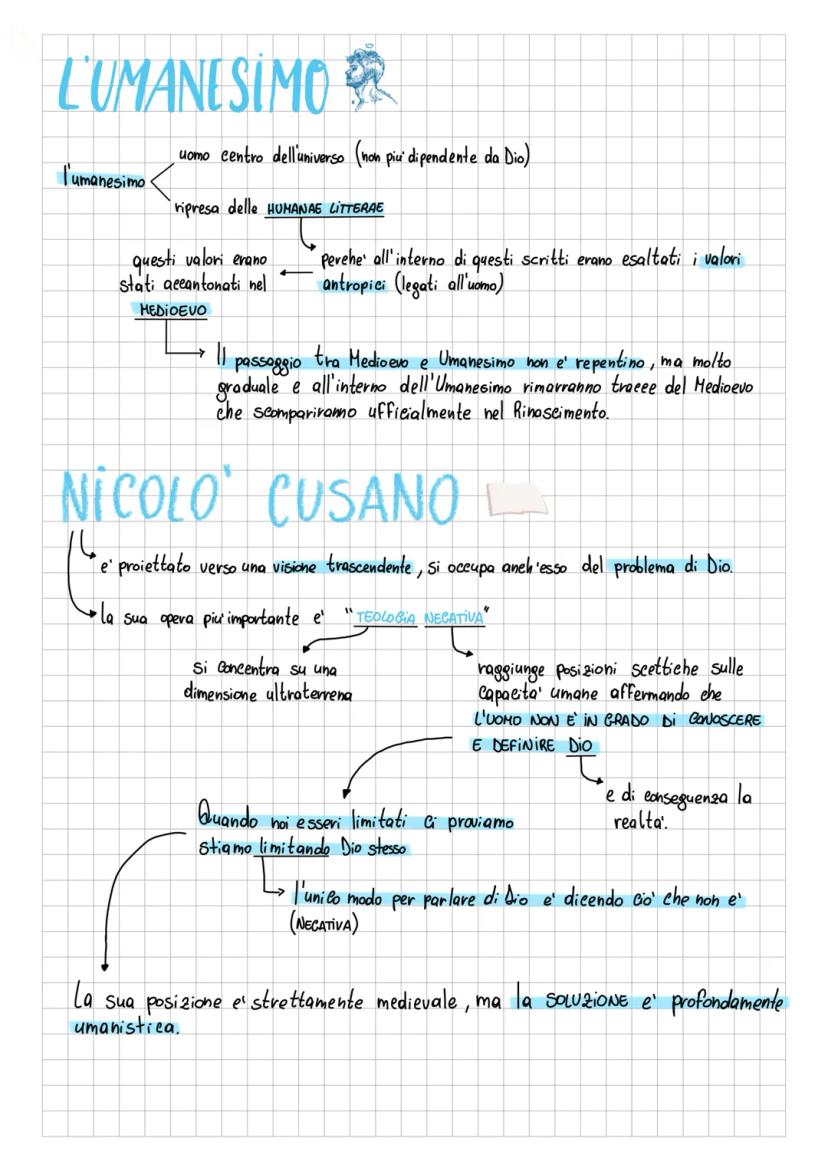 L'UMANESIMO
uomo centro dell'universo (non piu' dipendente da Dio)
l'umanesimo
ripresa delle HUMANAE LITTERAE
perche' all'interno di questi scritti erano esaltati i valori
antropici (legati all'uomo)
questi valori erano
stati accantonati nel
MEDIOEVO
Il passaggio tra Medioevo e Umanesimo non e' repentino, ma molto
graduale e all'interno dell'Umanesimo rimarranno tracce del Medioevo
che scompariranno ufficialmente nel Rinascimento.
NICOLO' CUSANO
e' proiettato verso una visione trascendente, si occupa anch'esso del problema di Dio.
la sua opera piu' importante e' "TEOLOGIA NEGATIVA"
si concentra su una
dimensione ultraterrena
raggiunge posizioni scettiche sulle
capacita' umane affermando che
L'UOMO NON E' IN GRADO DI CONOSCERE
E DEFINIRE DIO
e di conseguenza la
realta'.
Quando noi esseri limitati ci proviamo
stiamo limitando Dio stesso
l'unico modo per parlare di Dio e' dicendo cio' che non e'
(NEGATIVA)
La sua posizione e' strettamente medievale, ma la SOLUZIONE e' profondamente
umanistica.